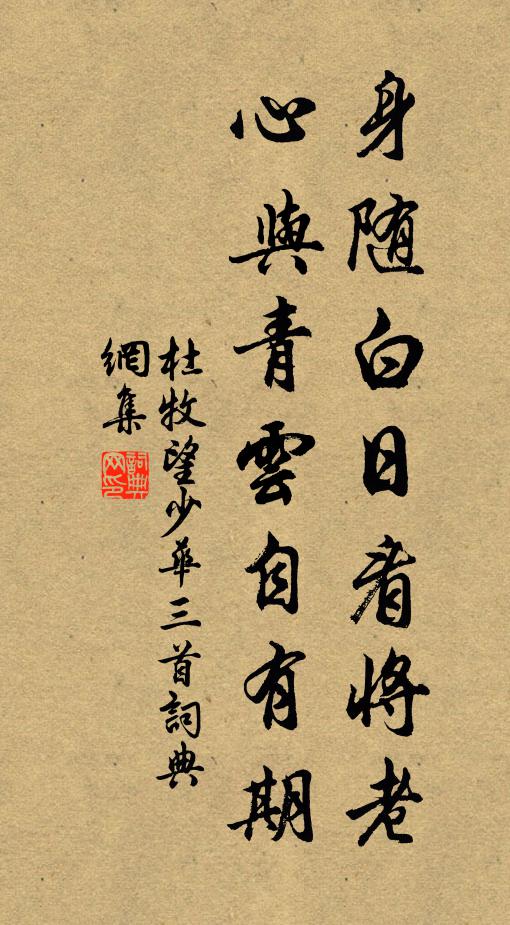 身随白日看將老
心與青雲自有期
杜牧望少華三首詞典
網集
詞典网印